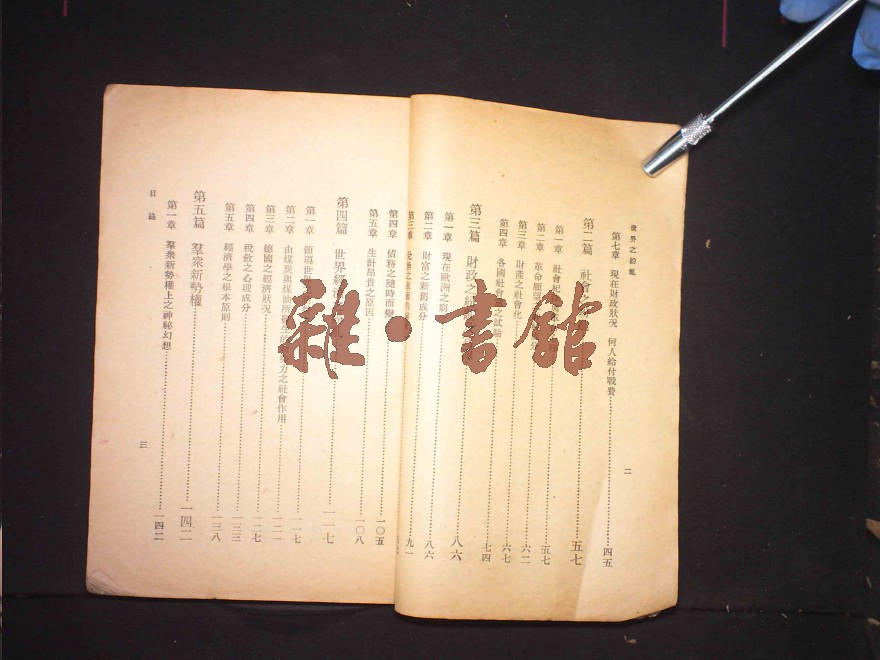 世界之紛亂
第七章 現在財政狀況 何人給付戰費 四五
第二篇 社會之 五七
第一章 社會 五七
第二章 革命 六二
第三章 財產之社會化 六七
第四章 各國社會之試驗 七四
二
第三篇 財政之 八六
第一章 現在歐洲之窮 八六
第二章 財富之新舊成分 九一
第三章
第四章 債務之隨時而變 一〇五
第五章 生計昂貴之原因 一〇八
第四篇 世界經濟 一一七
第一章 領導世界 一一七
第二章 由煤炭與煤油所發生 力之社會作用 一二二
第三章 德國之經濟狀況 一二七
第四章 稅斂之心理成分 一三三
第五章 經濟學之根本原則 一三八
第五篇 羣衆新勢權 一四二
第一章 羣衆新勢權上之神祕幻想 一四二
目錄
三
雜·書館